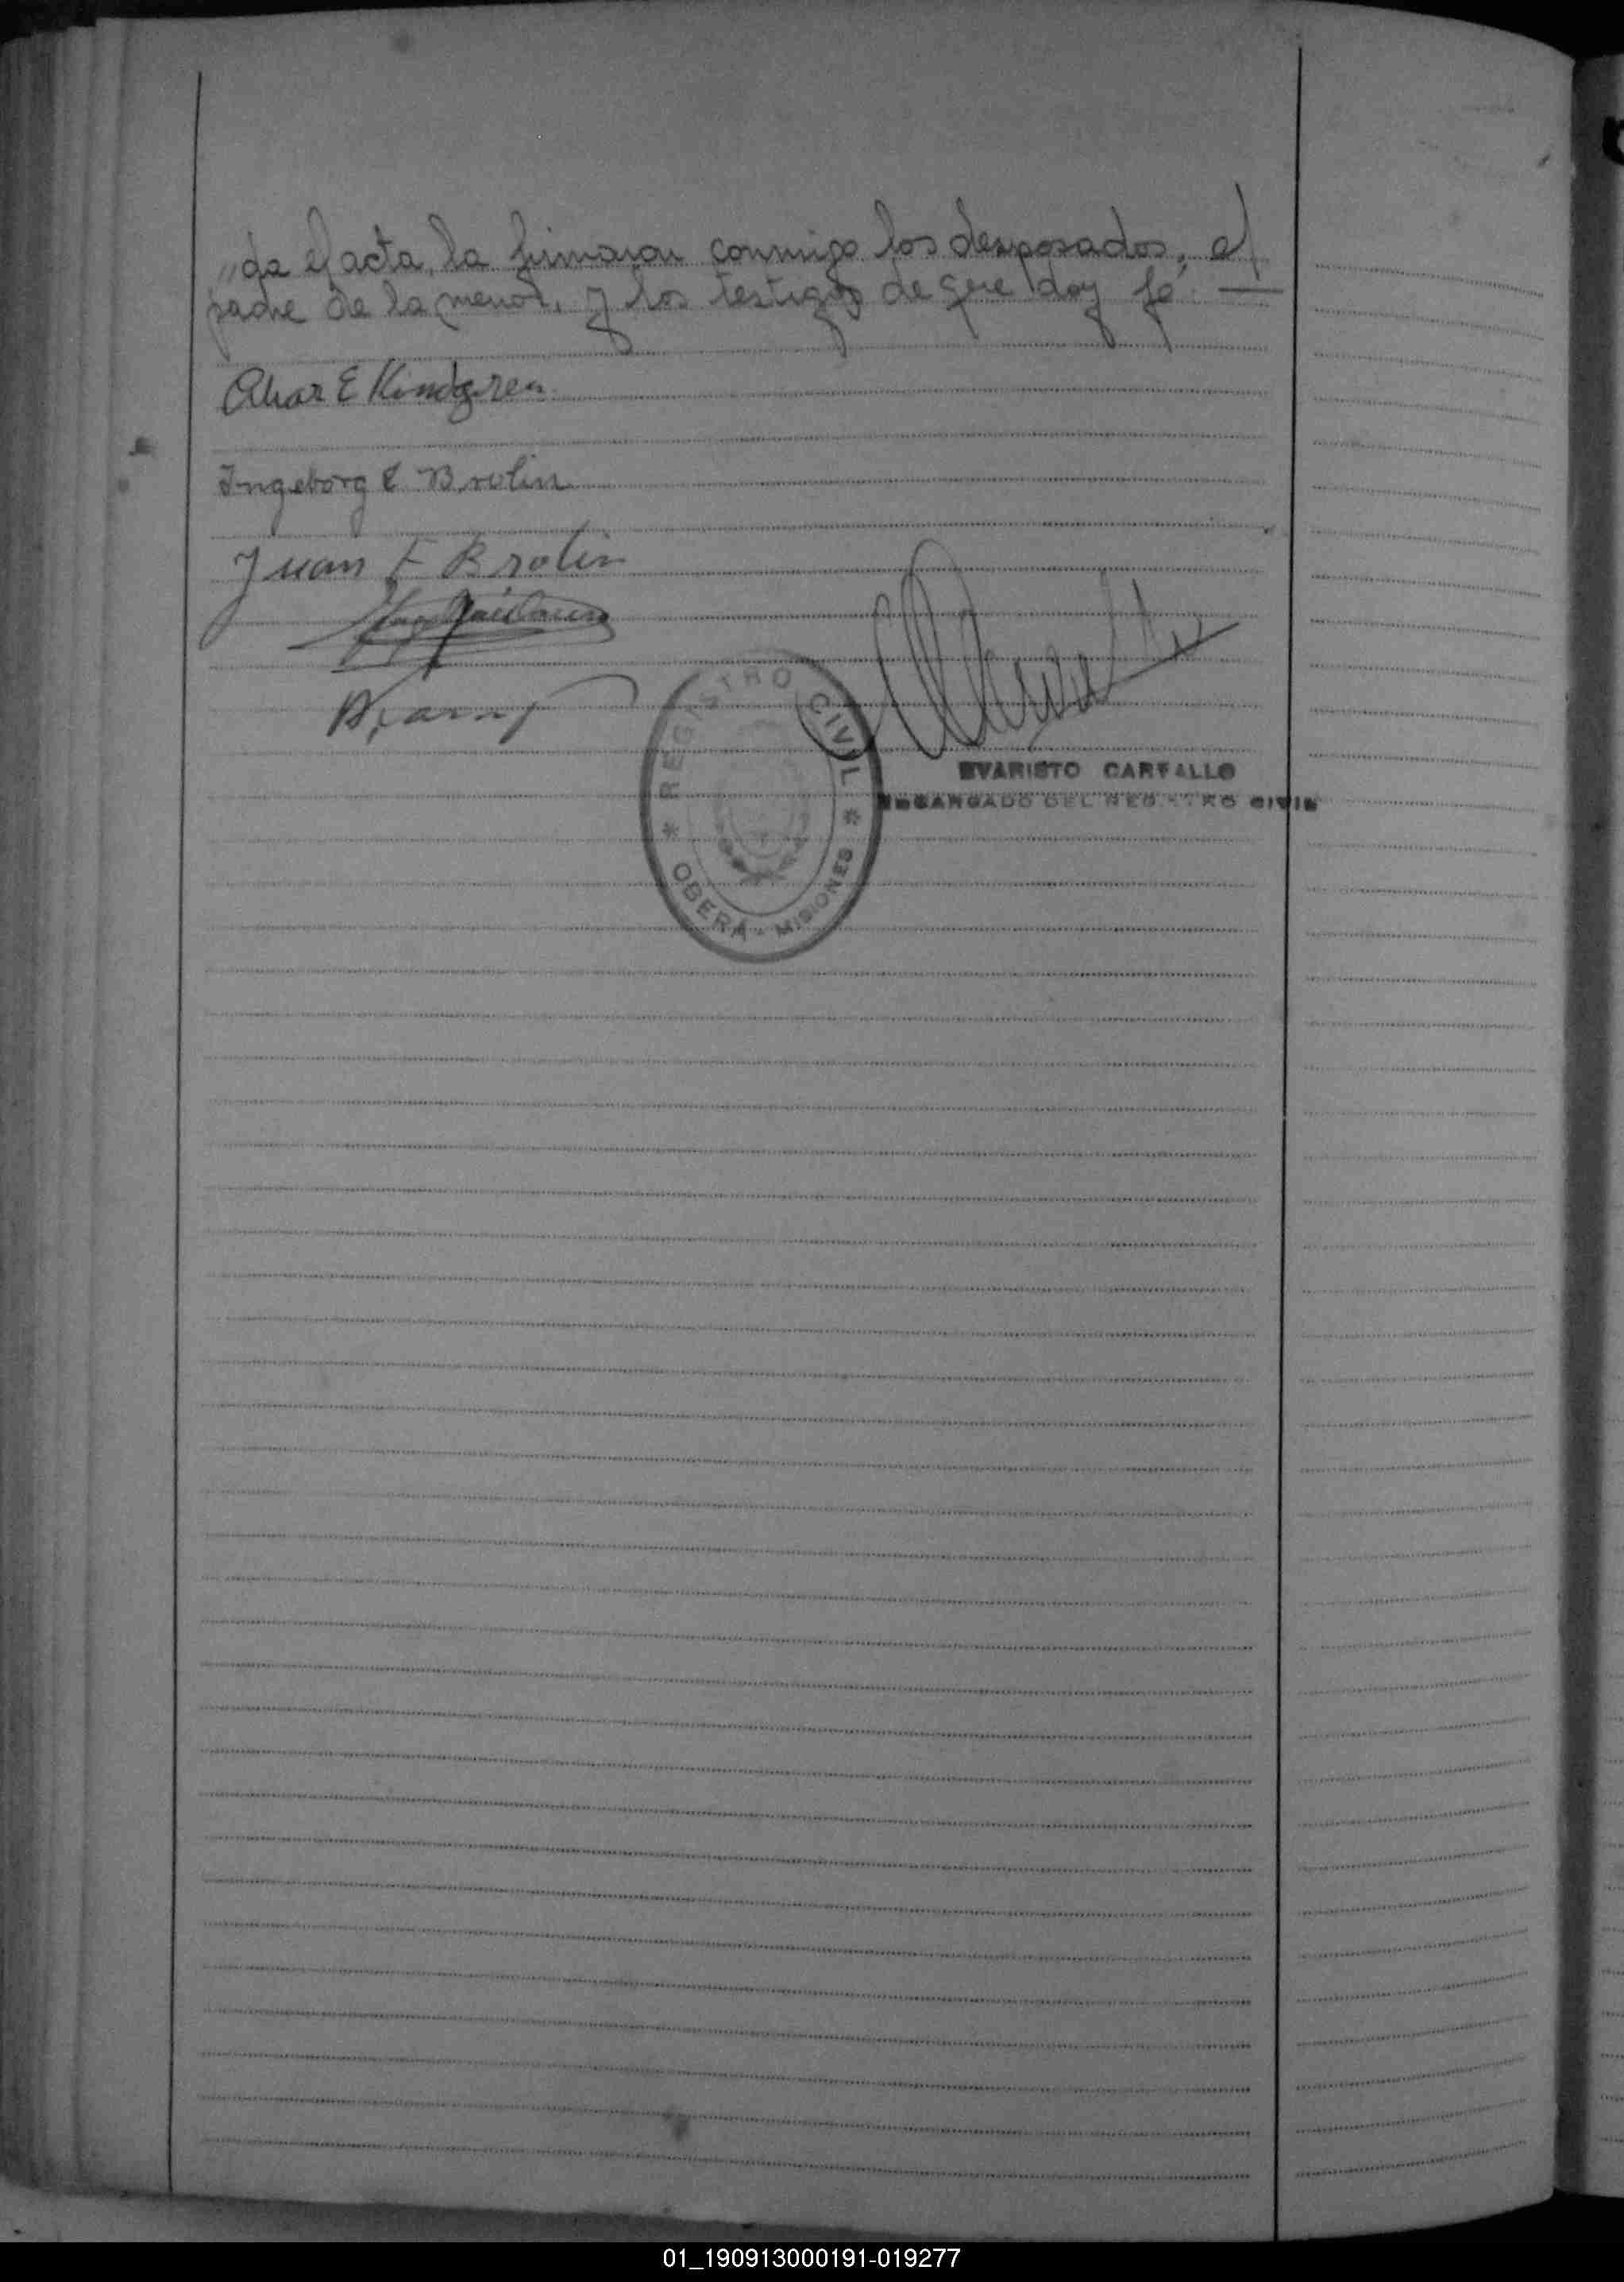 "da el acta, la firmaron conmigo los desposados, el
padre de la menor, y los testigos de que doy fé. —
E Kindgren
Ingeborg E Brolin
Juan E Brolin
REGISTRO CIVIL
* OBERÁ - MISIONES *
EVARISTO CARFALLO
ENCARGADO DEL REGISTRO CIVIL
01_190913000191-019277